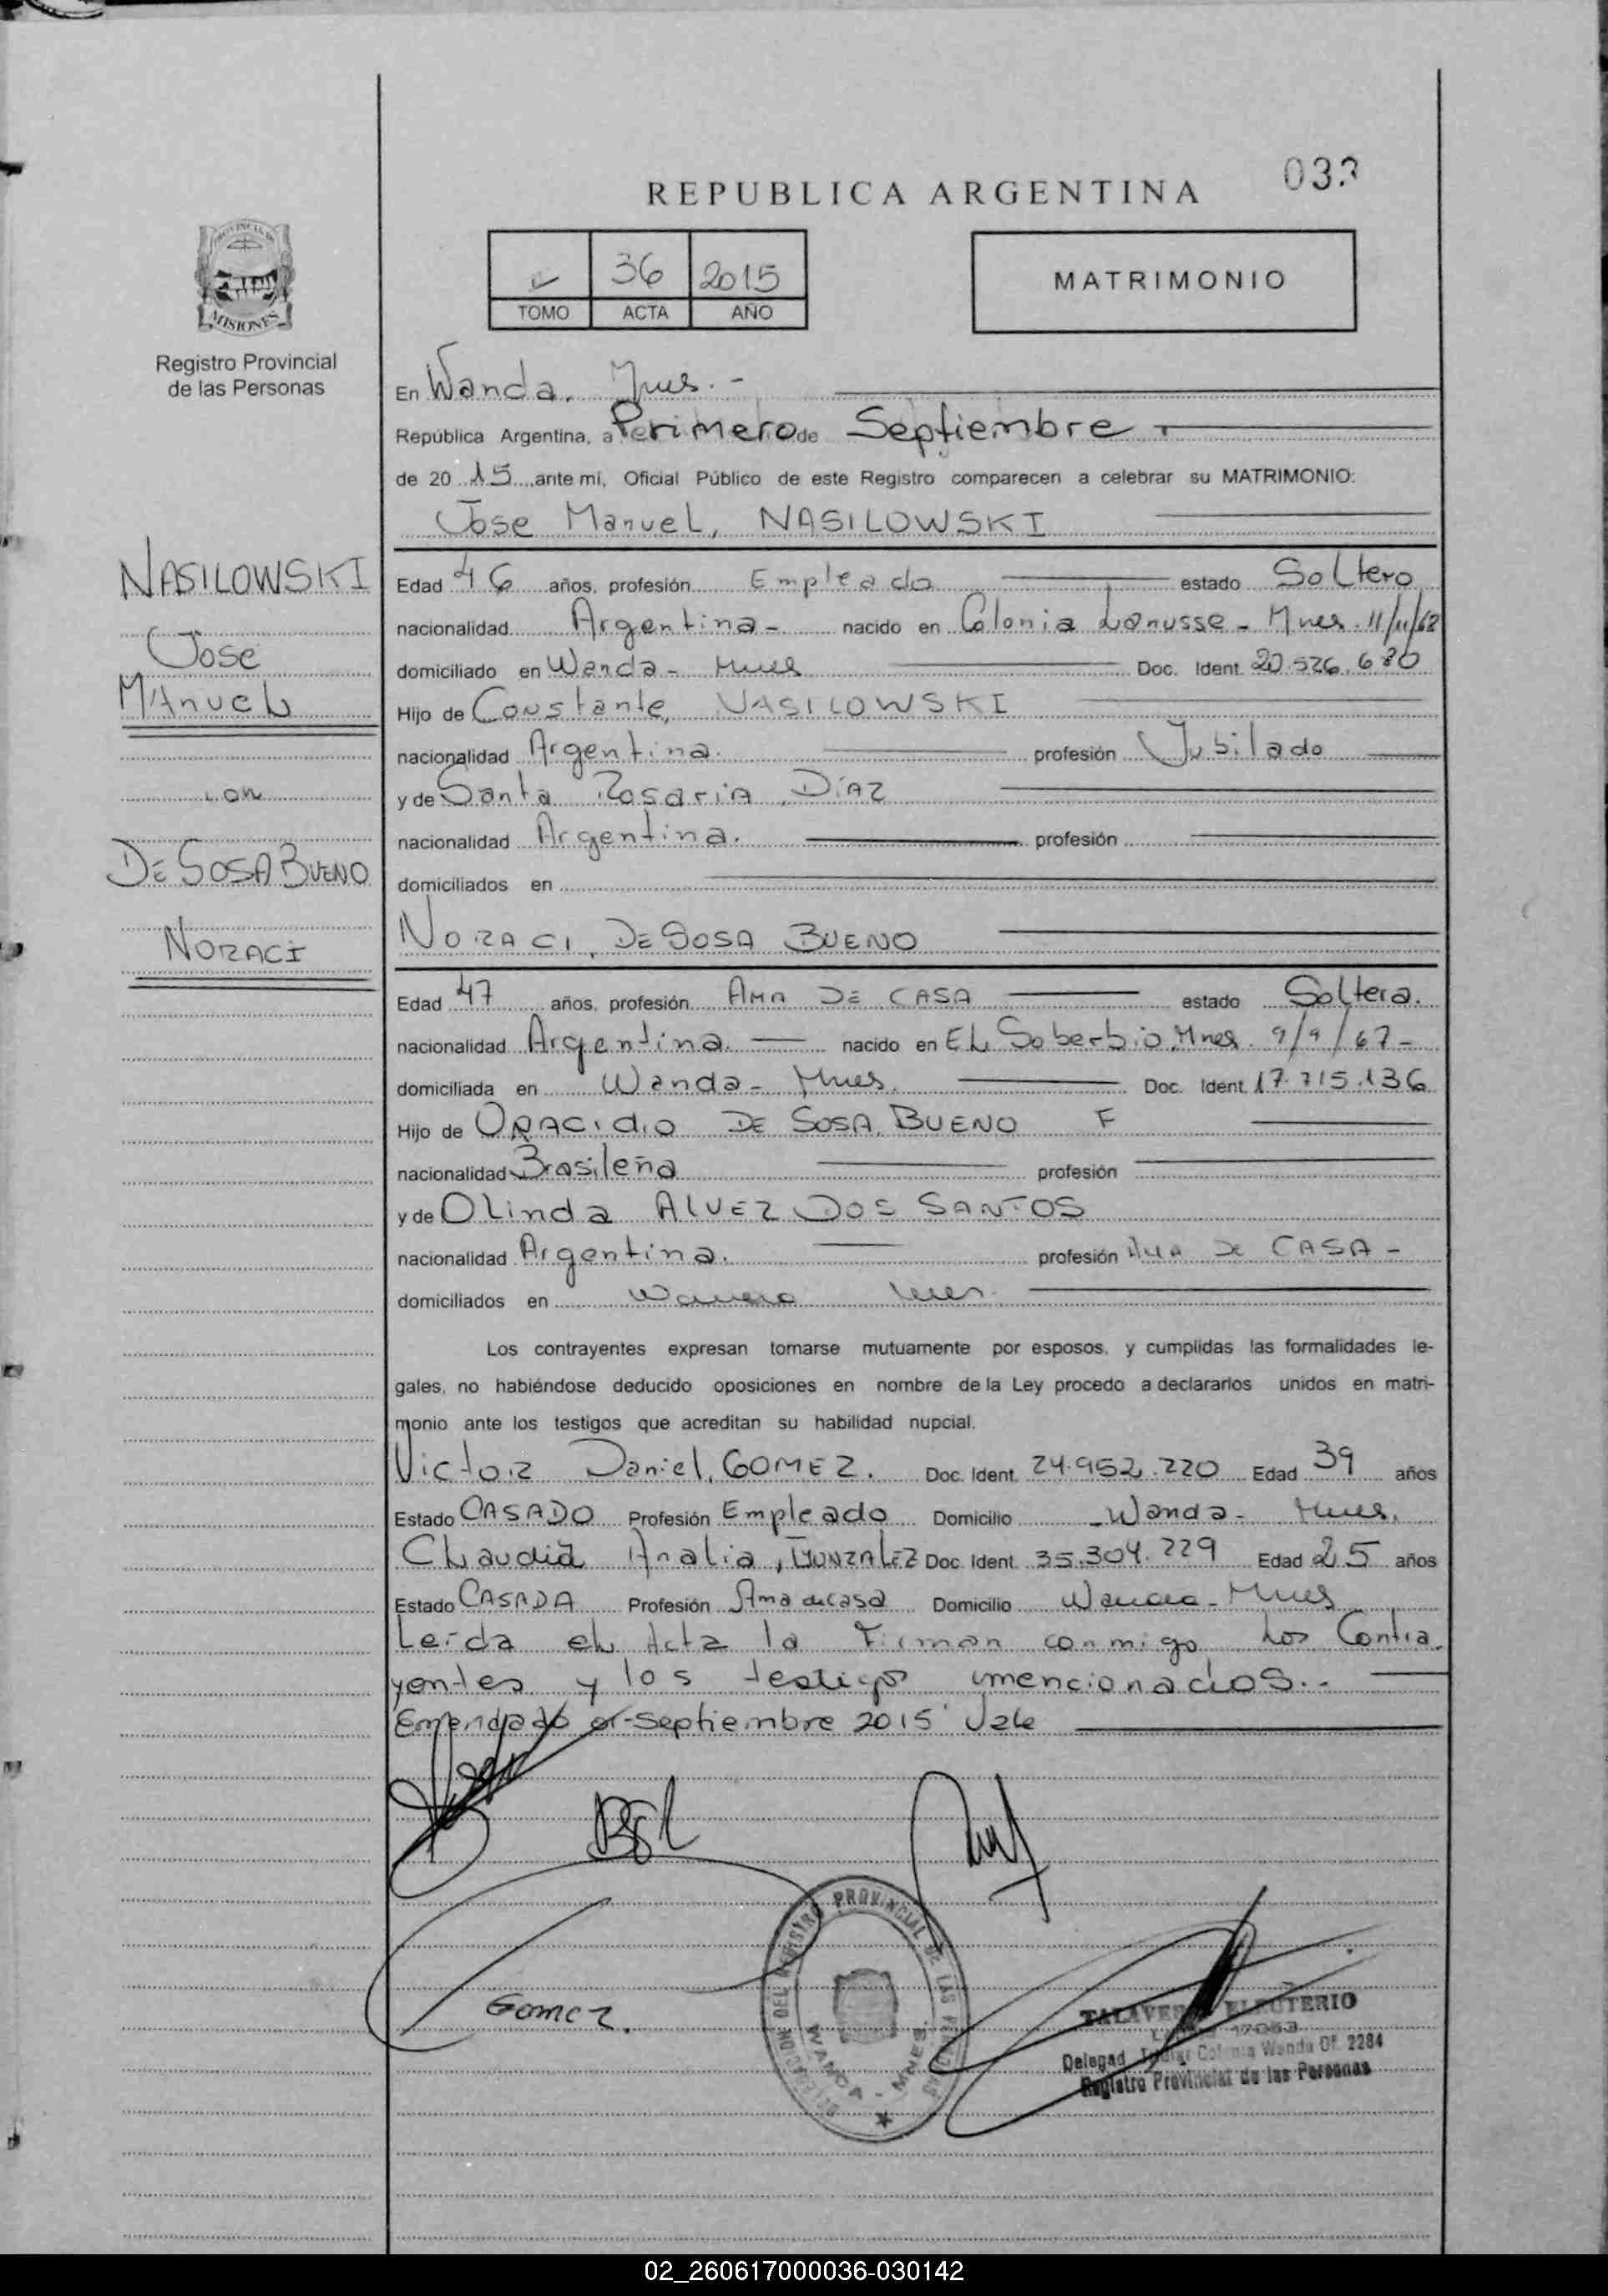 033
REPUBLICA ARGENTINA
36 2015
TOMO ACTA AÑO
MATRIMONIO
PROVINCIA DE
MISIONES
Registro Provincial
de las Personas
En Wanda. Mnes. -
República Argentina, a Perimero de Septiembre
de 20 15 ante mí, Oficial Público de este Registro comparecen a celebrar su MATRIMONIO:
Jose Manuel, NASILOWSKI
NASILOWSKI
Jose
Manuel
con
DE SOSA BUENO
NORACI
Edad 46 años, profesión Empleado estado Soltero
nacionalidad Argentina - nacido en Colonia Lanusse - Mnes. 11/11/68
domiciliado en Wanda - Mnes Doc. Ident. 20.526.680
Hijo de Constante, NASILOWSKI
nacionalidad Argentina. profesión Jubilado
y de Santa Rosaria DIAZ
nacionalidad Argentina. profesión
domiciliados en
NORACI, DE SOSA BUENO
Edad 47 años, profesión AMA DE CASA estado Soltera.
nacionalidad Argentina. nacido en EL Soberbio, Mnes. 9/9/67 -
domiciliada en Wanda - Mnes. Doc. Ident. 17.715.136
Hijo de ORACIdIO DE SOSA BUENO F
nacionalidad Brasileña profesión
y de OLinda ALVEZ DOS SANTOS
nacionalidad Argentina. profesión AMA DE CASA -
domiciliados en Mnes.
Los contrayentes expresan tomarse mutuamente por esposos, y cumplidas las formalidades le-
gales, no habiéndose deducido oposiciones en nombre de la Ley procedo a declararlos unidos en matri-
monio ante los testigos que acreditan su habilidad nupcial.
Victor Daniel, GOMEZ. Doc. Ident. 24.952.220 Edad 39 años
Estado CASADO Profesión Empleado Domicilio Wanda - Mnes.
CLaudia Analia, GONZALEZ Doc. Ident. 35.304.229 Edad 25 años
Estado CASADA Profesión Ama de casa Domicilio Wanda - Mnes
Leida el Acta la Firman conmigo los Contra
yentes y los testigos mencionados. -
Emendado Septiembre 2015 Vale
Gomez.
DELEGACION DEL REGISTRO PROVINCIAL DE LAS PERSONAS
WANDA - MNES.
TALAVERA ELEUTERIO
17053
Delegad Titular Colonia Wanda Of. 2284
Registro Provincial de las Personas
02_260617000036-030142